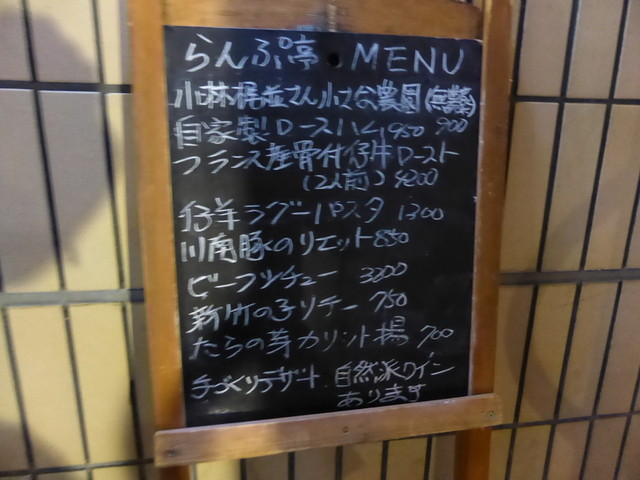 らんぷ亭 MENU
小林 さん 小さな農園(無農薬)
自家製ロースハム 950 900
フランス産骨付仔牛ロースト
(2人前) 4200
仔羊ラグーパスタ 1300
川南豚のリエット 850
ビーフシチュー 3200
新竹の子ソテー 750
たらの芽カリント揚 700
手づくりデザート 自然派ワイン
あります